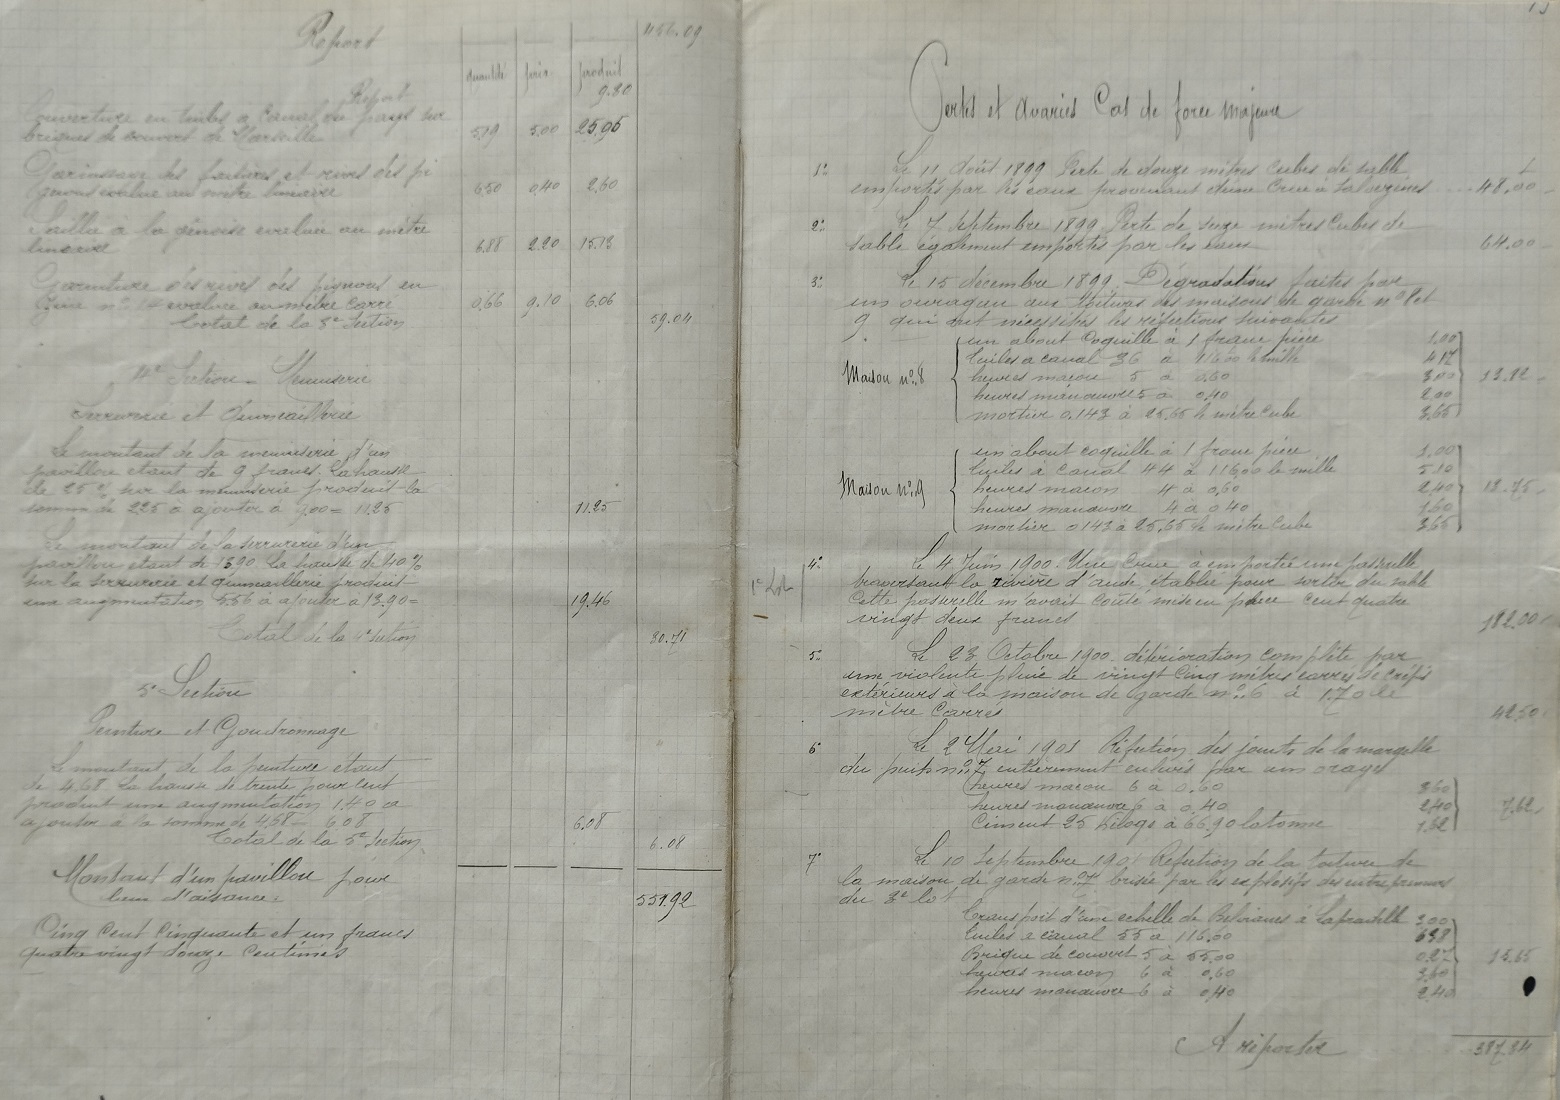 Report
456.09
quantité prix produit
Report 9.80
Couverture en tuiles a Canal du pays sur
briques de couvert de Marseille 5.19 5.00 25.95
Garnissage des faitières et rives des pi
gnons evalue au mètre linéaire 6.50 0.40 2.60
Saillie à la génoise evaluée au mètre
linéaire 6.88 2.20 15.13
Garniture des rives des pignons en
Zinc n° 14 evaluée au mètre carré 0.66 9.10 6.06
Total de la 3e Section 59.04
4e Section - Menuiserie
Serrurerie et Quincaillerie
Le montant de la menuiserie d'un
pavillon etant de 9 francs. La hausse
de 25% sur la menuiserie produit la
somme de 2.25 a ajouter à 9,00 = 11.25 11.25
Le montant de la serrurerie d'un
pavillon etant de 13.90 la hausse de 40%
sur la serrurerie et quincaillerie produit
une augmentation 5.56 à ajouter a 13.90= 19.46
Total de la 4e Section 30.71
5e Section
Peinture et Goudronnage
Le montant de la peinture etant
de 4,68 La hausse de trente pour cent
produit une augmentation 1.40 a
ajouter à la somme de 4,68 = 6.08 6.08
Total de la 5e Section 6.08
Montant d'un pavillon pour
lieux d'aisance: 551.92
Cinq Cent Cinquante et un francs
quatre vingt douze Centimes
Pertes et Avaries Cas de force Majeure
1° Le 11 Août 1899 Perte de douze mètres Cubes de sable
emportés par les eaux provenant d'une Crue à Salvezines 48.00
2° Le 7 Septembre 1899 Perte de seize mètres Cubes de
sable également emportés par les eaux 64.00
3° Le 15 décembre 1899. Dégradations faites par
un ouragan aux toitures des maisons de garde n° 8 et
9 qui ont nécessités les réfections suivantes
Maison n° 8
un about Coquille à 1 franc pièce 1.00
tuiles a canal 36 à 116.00 le mille 4.17
heures maçon 5 à 0.60 3.00 13.82
heures manœuvre 5 à 0.40 2.00
mortier 0.143 à 25.65 le mètre Cube 3.65
Maison n° 9
un about coquille à 1 franc pièce 1.00
tuiles à Canal 44 à 116,00 le mille 5.10
heures maçon 4 à 0,60 2.40 13.75
heures manœuvre 4 à 0.40 1.60
mortier 0.143 à 25,65 le mètre Cube 3.65
1er Lot
4° Le 4 Juin 1900. Une Crue à emportée une passerelle
traversant la rivière d'aude, établie pour sortir du sable
Cette passerelle m'avait Coûté mise en place cent quatre
vingt deux francs 182.00
5° Le 23 Octobre 1900. détérioration complète par
une violente pluie de vingt Cinq mètres carres de crépis
extérieurs à la maison de Garde n° 6 à 1.70 le
mètre Carrés 42.50
6° Le 2 Mai 1901 Réfection des joints de la margelle
du puits n° 7, entièrement enlevés par un orage
heures maçon 6 à 0.60 3.60
heures manœuvre 6 à 0.40 2.40 7.62
Ciment 25 kilogs à 66.90 la tonne 1.62
7° Le 10 Septembre 1901 Réfection de la toiture de
la maison de garde n° 7 brisée par les explosifs des entrepreneurs
du 3e lot
Transport d'une echelle de à Lapradelle 3.00
tuiles a canal 55 a 116.00 6.38
Brique de couvert 5 à 55.00 0.27 15.65
heures maçon 6 à 0.60 3.60
heures manœuvre 6 à 0,40 2.40
A réporter 387.34